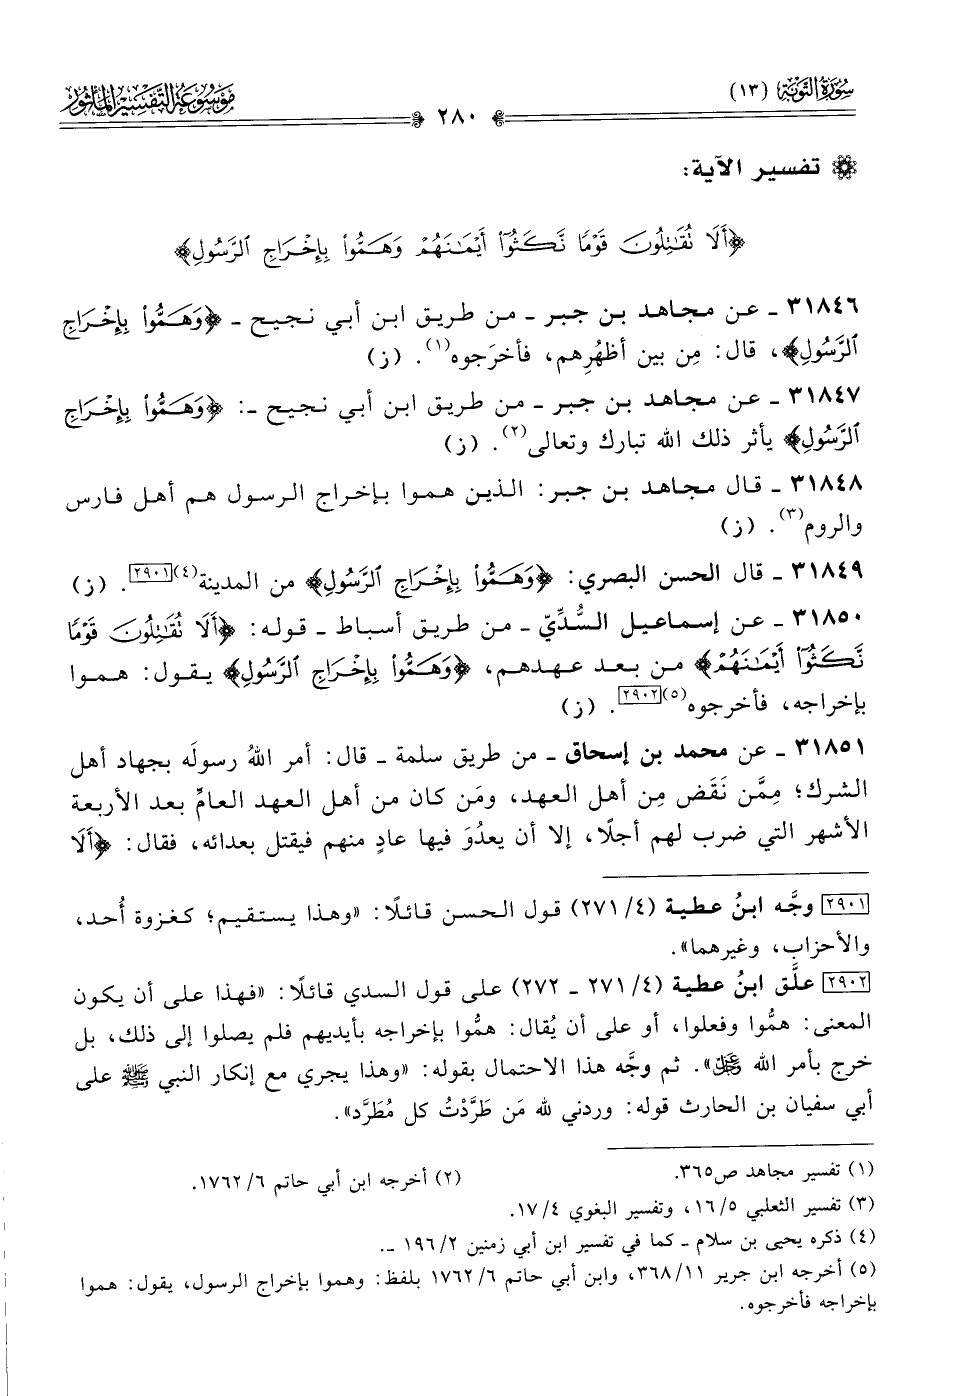 سُورَةُ التَّوْبَةِ (١٣)
٢٨٠
مَوْسُوعَةُ التَّفْسِيرِ المَأْثُورِ
تفسير الآية:
﴿أَلَا تُقَاتِلُونَ قَوْمًا نَّكَثُوا أَيْمَانَهُمْ وَهَمُّوا بِإِخْرَاجِ الرَّسُولِ﴾
٣١٨٤٦ ـ عن مجاهد بن جبر ـ من طريق ابن أبي نجيح ـ ﴿وَهَمُّوا بِإِخْرَاجِ
الرَّسُولِ﴾، قال: مِن بين أظهُرِهم، فأخرَجوه(١). (ز)
٣١٨٤٧ ـ عن مجاهد بن جبر ـ من طريق ابن أبي نجيح ـ: ﴿وَهَمُّوا بِإِخْرَاجِ
الرَّسُولِ﴾ يأثر ذلك الله تبارك وتعالى(٢). (ز)
٣١٨٤٨ ـ قال مجاهد بن جبر: الذين هموا بإخراج الرسول هم أهل فارس
والروم(٣). (ز)
٣١٨٤٩ ـ قال الحسن البصري: ﴿وَهَمُّوا بِإِخْرَاجِ الرَّسُولِ﴾ من المدينة(٤)[٢٩٠١]. (ز)
٣١٨٥٠ ـ عن إسماعيل السُّدِّيّ ـ من طريق أسباط ـ قوله: ﴿أَلَا تُقَاتِلُونَ قَوْمًا
نَّكَثُوا أَيْمَانَهُمْ﴾ من بعد عهدهم، ﴿وَهَمُّوا بِإِخْرَاجِ الرَّسُولِ﴾ يقول: هموا
بإخراجه، فأخرجوه(٥)[٢٩٠٢]. (ز)
٣١٨٥١ ـ عن محمد بن إسحاق ـ من طريق سلمة ـ قال: أمر اللهُ رسولَه بجهاد أهل
الشرك؛ مِمَّن نَقَض مِن أهل العهد، ومَن كان من أهل العهد العامِّ بعد الأربعة
الأشهر التي ضرب لهم أجلًا، إلا أن يعدُوَ فيها عادٍ منهم فيقتل بعدائه، فقال: ﴿أَلَا
[٢٩٠١] وجَّه ابنُ عطية (٤/ ٢٧١) قول الحسن قائلًا: «وهذا يستقيم؛ كغزوة أُحد،
والأحزاب، وغيرهما».
[٢٩٠٢] علَّق ابنُ عطية (٤/ ٢٧١ ـ ٢٧٢) على قول السدي قائلًا: «فهذا على أن يكون
المعنى: همُّوا وفعلوا، أو على أن يُقال: همُّوا بإخراجه بأيديهم فلم يصلوا إلى ذلك، بل
خرج بأمر الله ﷿». ثم وجَّه هذا الاحتمال بقوله: «وهذا يجري مع إنكار النبي ﷺ على
أبي سفيان بن الحارث قوله: وردني لله مَن طَرَّدْتُ كل مُطَرَّد».
(١) تفسير مجاهد ص٣٦٥.
(٢) أخرجه ابن أبي حاتم ٦/ ١٧٦٢.
(٣) تفسير الثعلبي ٥/ ١٦، وتفسير البغوي ٤/ ١٧.
(٤) ذكره يحيى بن سلام ـ كما في تفسير ابن أبي زمنين ٢/ ١٩٦ ـ.
(٥) أخرجه ابن جرير ١١/ ٣٦٨، وابن أبي حاتم ٦/ ١٧٦٢ بلفظ: وهموا بإخراج الرسول، يقول: هموا
بإخراجه فأخرجوه.